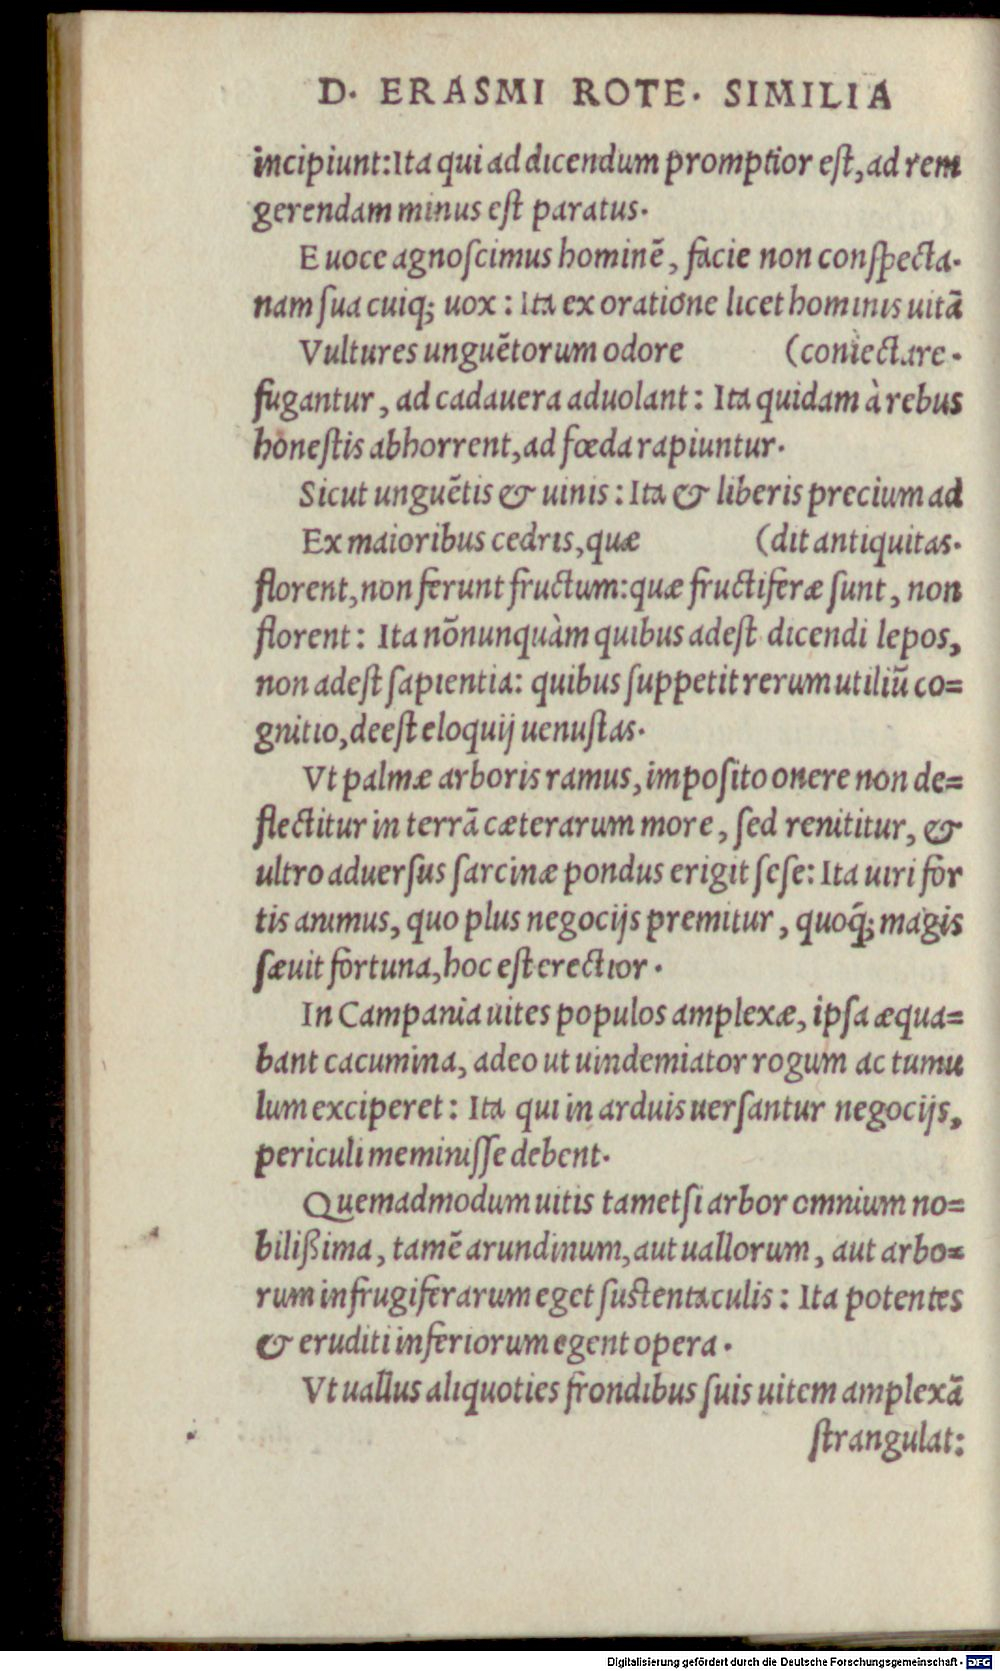 D. ERASMI ROTE. SIMILIA
incipiunt: Ita qui ad dicendum promptior eſt, ad rem
gerendam minus eſt paratus.
E uoce agnoſcimus hominē, facie non conſpecta.
nam ſua cuiq; uox: Ita ex oratione licet hominis uitā
Vultures unguētorum odore (coniectare.
fugantur, ad cadauera aduolant: Ita quidam à rebus
honeſtis abhorrent, ad fœda rapiuntur.
Sicut unguētis & uinis: Ita & liberis precium ad
Ex maioribus cedris, quæ (dit antiquitas.
florent, non ferunt fructum: quæ fructiferæ ſunt, non
florent: Ita nōnunquàm quibus adeſt dicendi lepos,
non adeſt ſapientia: quibus ſuppetit rerum utiliū co=
gnitio, deeſt eloquij uenuſtas.
Vt palmæ arboris ramus, impoſito onere non de=
flectitur in terrā cæterarum more, ſed renititur, &
ultro aduerſus ſarcinæ pondus erigit ſeſe: Ita uiri for
tis animus, quo plus negocijs premitur, quoq̄; magis
ſæuit fortuna, hoc eſt erectior.
In Campania uites populos amplexæ, ipſa æqua=
bant cacumina, adeo ut uindemiator rogum ac tumu
lum exciperet: Ita qui in arduis uerſantur negocijs,
periculi meminiſſe debent.
Quemadmodum uitis tametſi arbor omnium no=
bilißima, tamē arundinum, aut uallorum, aut arbo=
rum infrugiferarum eget ſuſtentaculis: Ita potentes
& eruditi inferiorum egent opera.
Vt uallus aliquoties frondibus ſuis uitem amplexā
ſtrangulat:
Digitalisierung gefördert durch die Deutsche Forschungsgemeinschaft - DFG